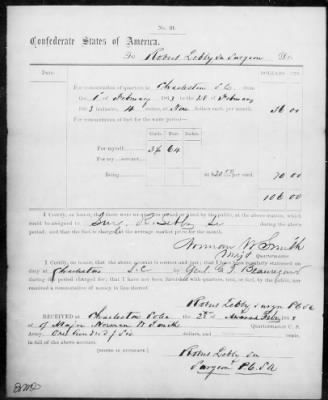 No. 21.
Confederate States of America.
To Robert Lebby Jr Surgeon Dr.
DATE.
DOLLARS. CTS.
For commutation of quarters at Charleston S.C. from
the 1st of February 1863 to the 28 of February
1863 rooms, 4 at Nine dollars each, per month. 36 00
For commutation of fuel for the same period—
Cords. Feet.
For myself
For my servant
Being at per cord. 70 00
106 00
I Certify, on honor, that there were no quarters owned or hired by the public, at the above station, which
could be assigned to Surg. R Lebby Jr during the above
period; and that the fuel is charged at the average market price for the month.
Norman W Smith
Major Quartermaster
I Certify, on honor, that the above account is correct and just; that I have been regularly stationed on
duty at Charleston S.C. by Genl. G. T. Beauregard
during the period charged for; that I have not been furnished with quarters, rent, or fuel, by the public, nor
received a commutation of money in lieu thereof.
Robert Lebby Jr Surgn P.C.S.A
RECEIVED at Charleston So Ca the 28th of Feby 1863
of Major Norman W Smith Quartermaster C. S.
Army, One hundred & six dollars and cents,
in full of the above account.
Robert Lebby Jr
Surgeon P.C.S.A